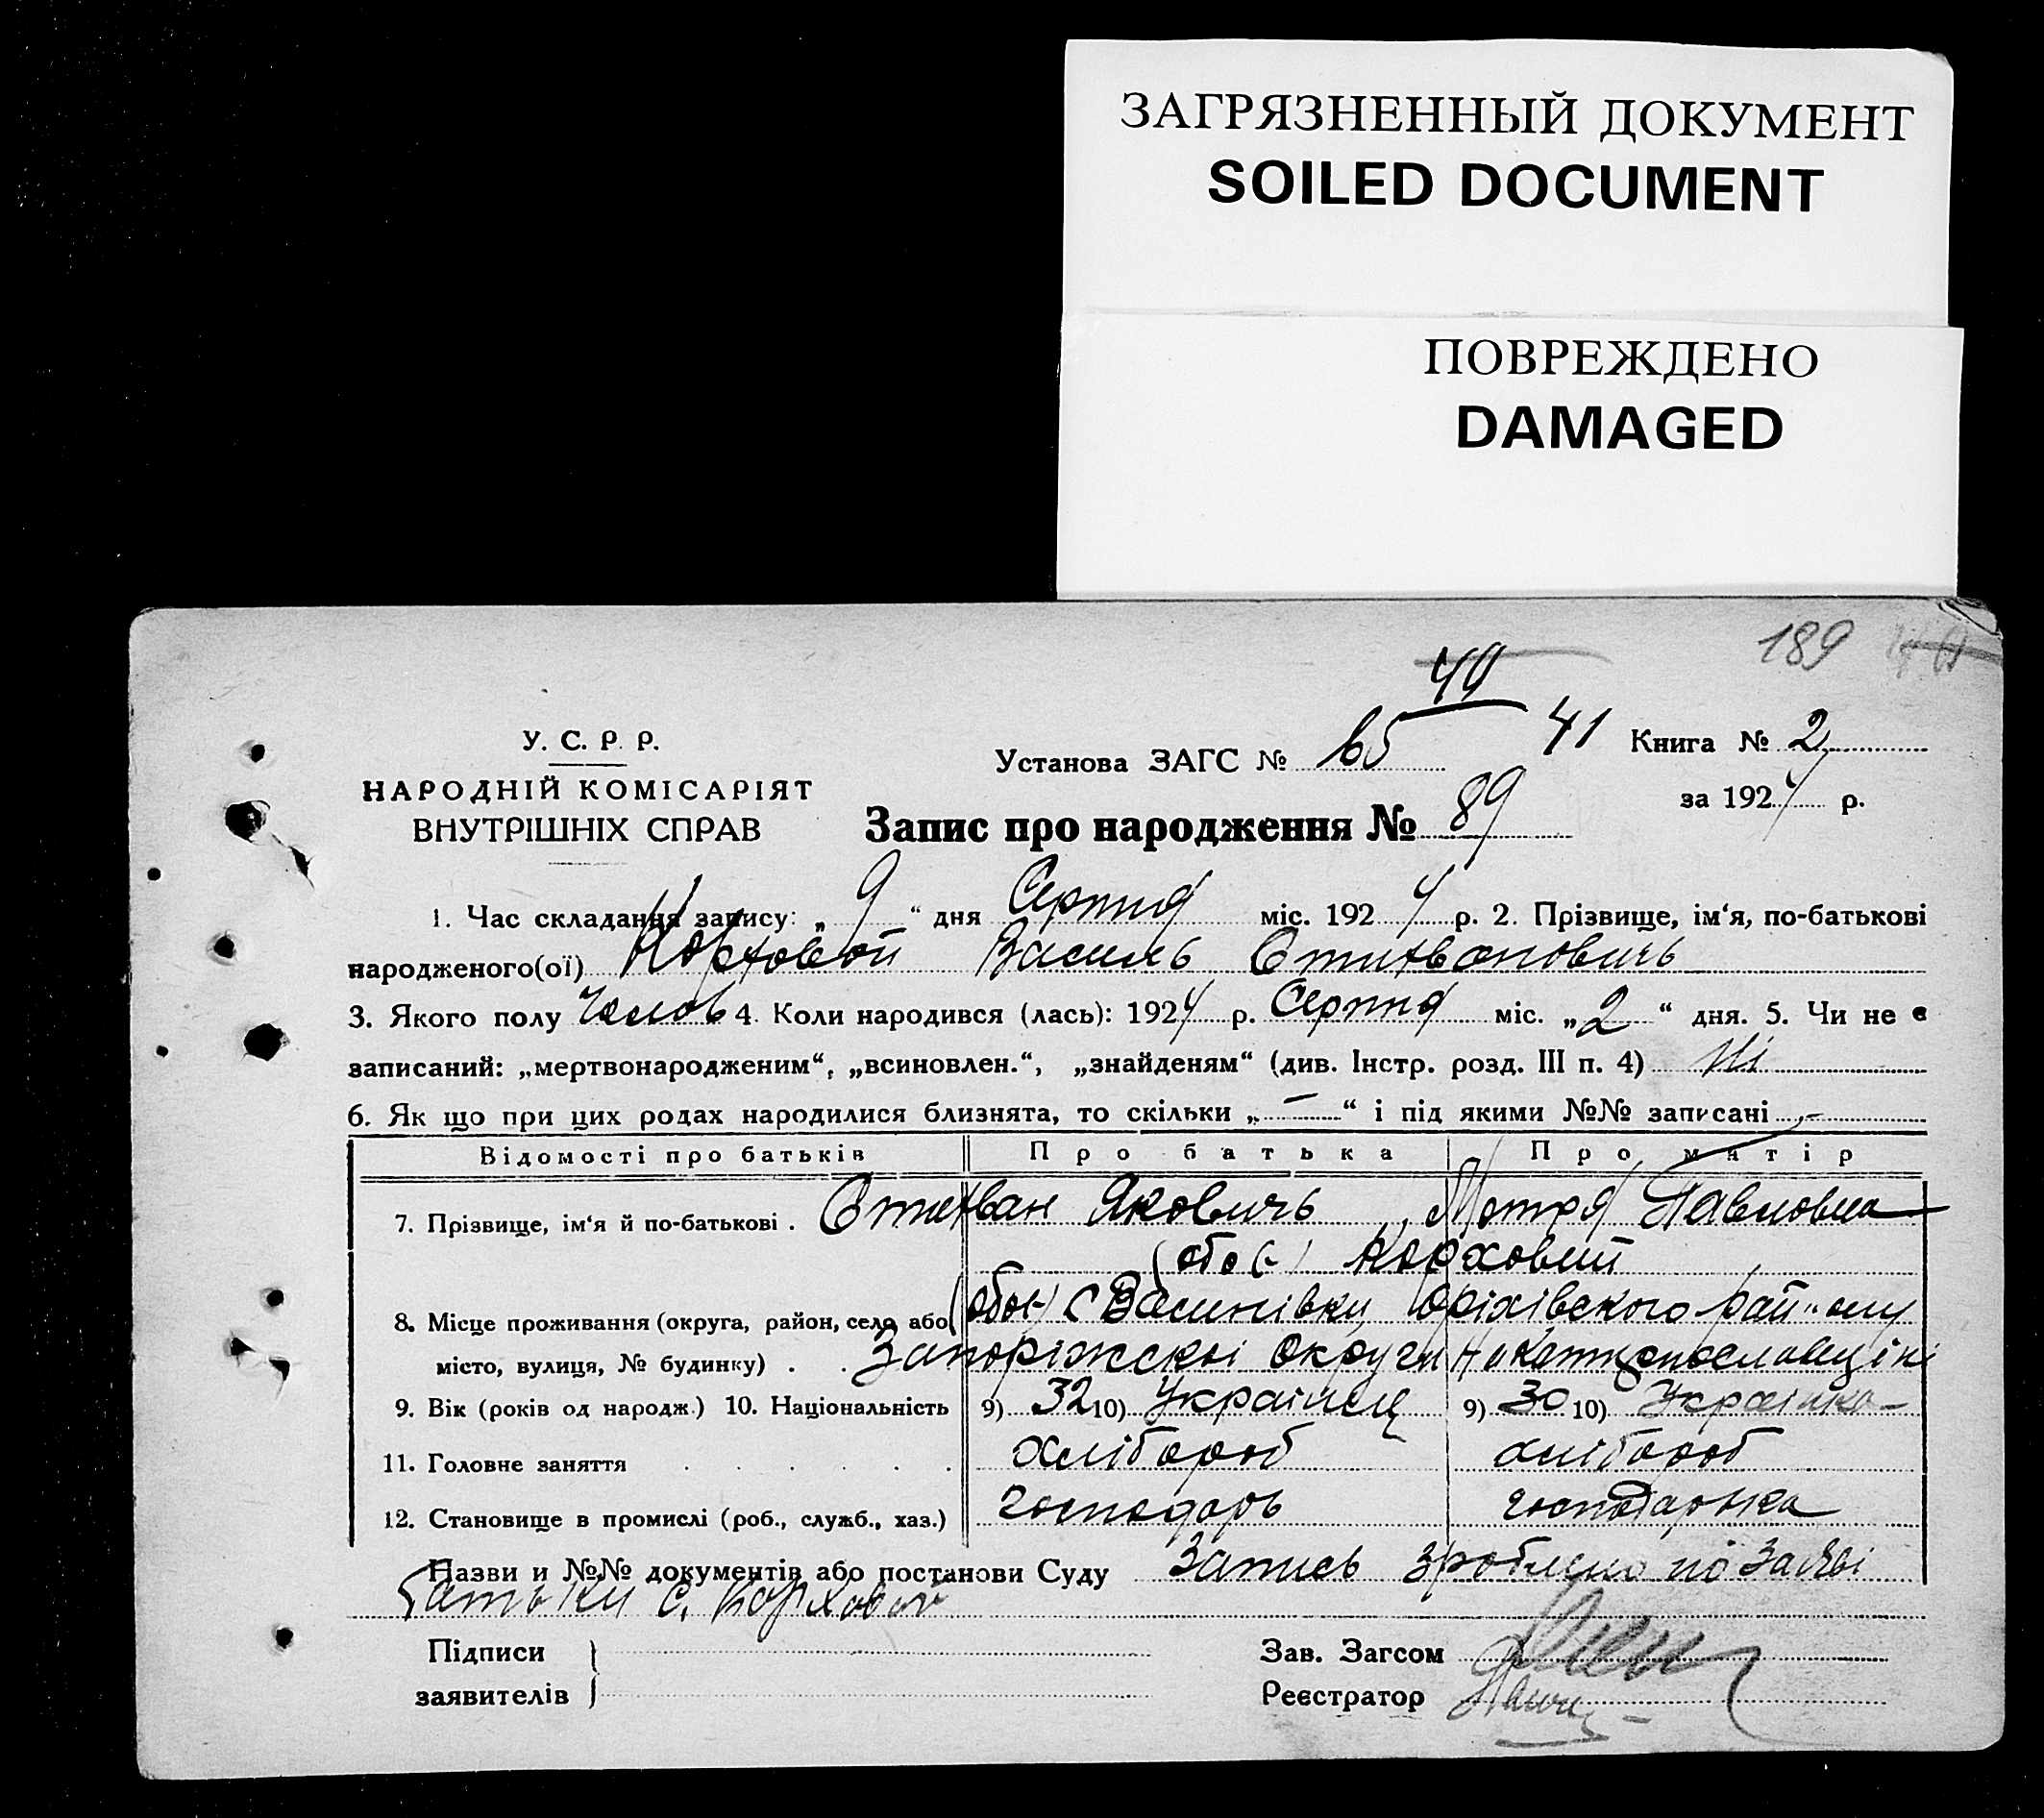 ЗАГРЯЗНЕННЫЙ ДОКУМЕНТ
SOILED DOCUMENT
ПОВРЕЖДЕНО
DAMAGED
189
49
У. С. Р. Р.
Установа ЗАГС № 65 41 Книга № 2
НАРОДНІЙ КОМІСАРІЯТ
ВНУТРІШНІХ СПРАВ
за 1924 р.
Запис про народження № 89
1. Час складання запису: „ 9 “ дня Серпня міс. 1924 р. 2. Прізвище, ім‘я, по-батькові
народженого(ої) Корховой Василь Стихванович
3. Якого полу Чолов 4. Коли народився (лась): 1924 р. Серпня міс. „ 2 “ дня. 5. Чи не є
записаний: „мертвонародженим“, „всиновлен.“, „знайденям“ (див. Інстр. розд. III п. 4) Ні
6. Як що при цих родах народилися близнята, то скільки „ — “ і під якими №№ записані —
Відомості про батьків Про батька Про матір
7. Прізвище, ім‘я й по-батькові . Стихван Яковичь Мотря Павловна
(обоє) Корховий
8. Місце проживання (округа, район, село або (обоє) с Василівки, Оріхівского рай
місто, вулиця, № будинку) . . Запоріжскоі Округи на Катеринославщіні
9. Вік (років од народж.) 10. Національність 9) 32 10) Украінец 9) 30 10) Украінка
11. Головне заняття . . . . . . хлібороб хлібороб
12. Становище в промислі (роб., служб., хаз.) господарь господарька
Назви и №№ документів або постанови Суду Запись зроблено по заяві
батьки С. Корховой
Підписи
заявителів
Зав. Загсом
Реєстратор